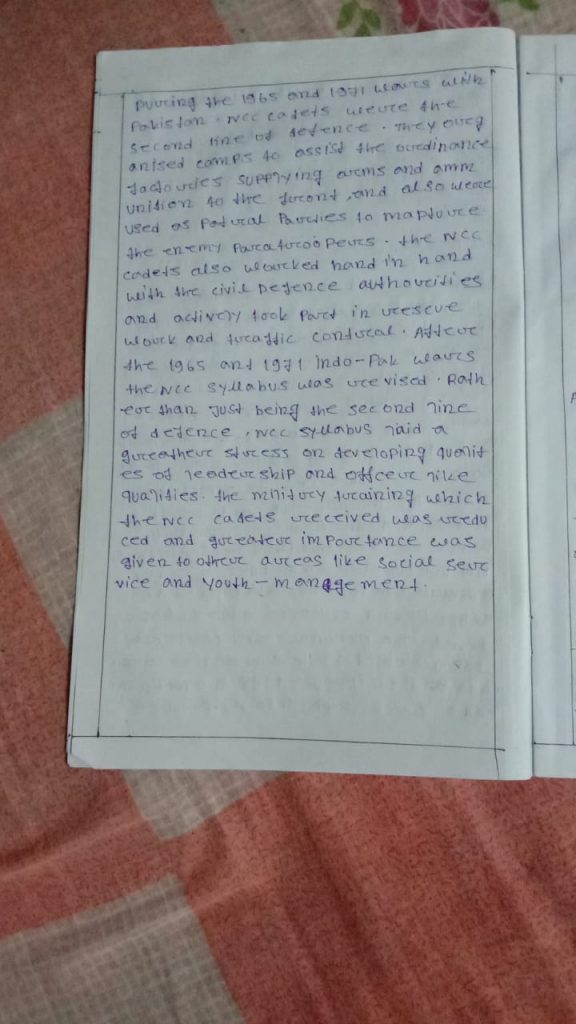 During the 1965 and 1971 wars with
Pakistan. NCC cadets were the
second line of defence. They org
anised camps to assist the ordinance
factories supplying arms and amm
unition to the front, and also were
used as Patral Parties to mapture
the enemy Paratroopers. the NCC
cadets also worked hand in hand
with the civil Defence authorities
and actively took Part in rescue
work and traffic control. After
the 1965 and 1971 Indo-Pak wars
the NCC syllabus was revised. Rath
er than just being the second line
of defence, NCC syllabus laid a
greather stress on developing qualit
es of leadership and offcer like
qualities. the military training which
the NCC cadets received was redu
ced and greater importance was
given to other areas like social ser
vice and youth-management.